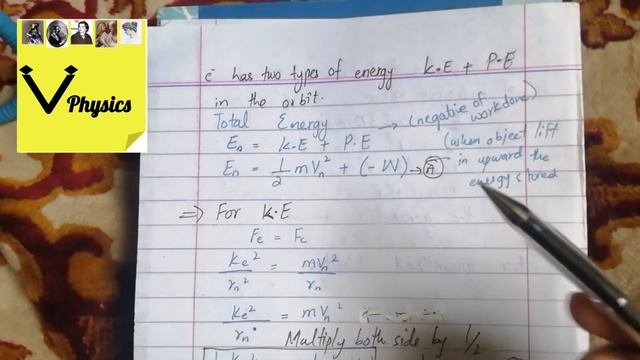 V Physics
e⁻ has two types of energy K.E + P.E
in the orbit.
Total Energy → (negative of workdone)
Eₙ = K.E + P.E (when object lift
Eₙ = 1/2 mVₙ² + (-W) → Ⓐ in upward the
energy stored
⇒ For K.E
Fe = Fc
ke²/rₙ² = mVₙ²/rₙ
ke²/rₙ = mVₙ²
Multiply both side by 1/2